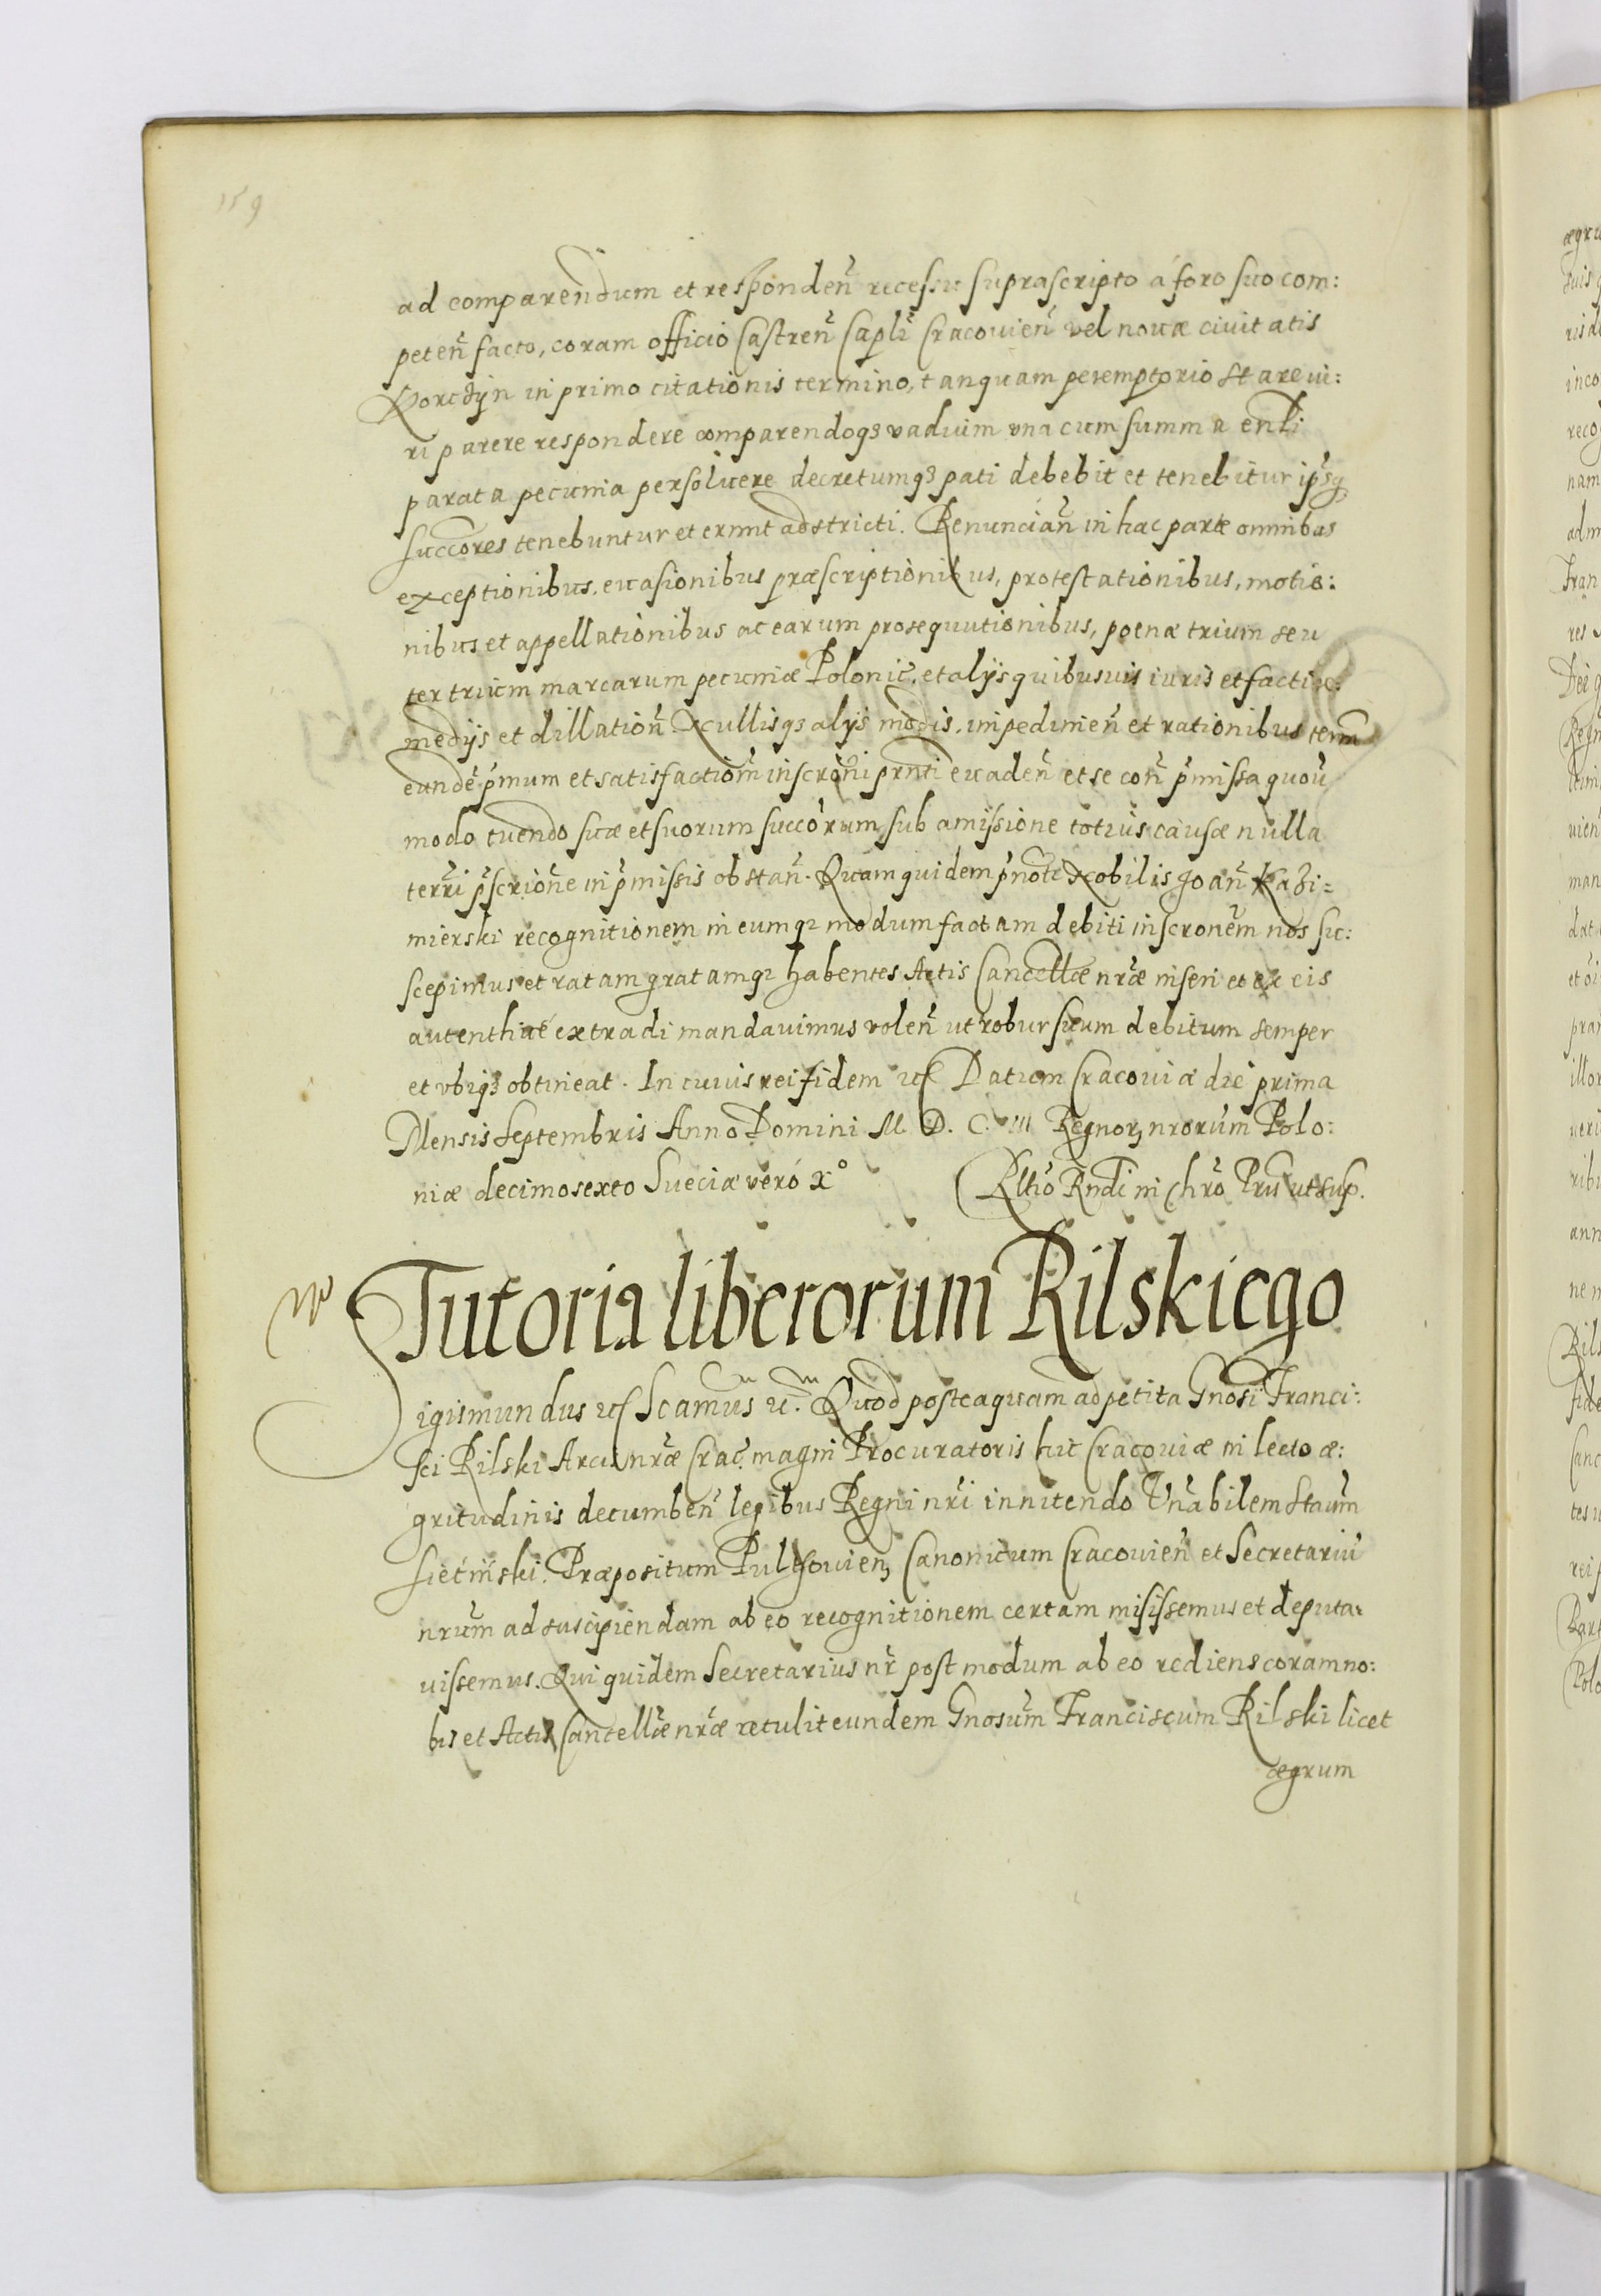 159
ad comparendum et responden̄ recessu suprascripto á foro suo com:
peten̄ facto, coram officio Castren̄ Capli Cracovien̄ vel novæ civitatis
Korczÿn in primo citationis termino, tanquam peremptorio stare iu:
ri parere respondere comparendoqꝫ vadium vna cum summa
parata pecunia persoluere decretumqꝫ pati debebit et tenebitur ipsiqꝫ
succōres tenebuntur et erunt adstricti. Renuncian̄ in hac parte omnibus
exceptionibus, evasionibus præscriptionibus, protestationibus, motio:
nibus et appellationibus ac earum prosequutionibus, poenæ trium seu
ter trium marcarum pecuniæ Polonic̄, et alÿs quibusuis iuris et facti re:
medÿs et dillation̄ Nullisqꝫ alÿs modis, impedimen̄ et rationibus term̄
eundē p̄mum et satisfactiōm inscrōni prn̄ti evaden̄ et se con̄ p̄missa quoū
modo tuendo suæ et suorum succōrum, sub amissione totius causæ nulla
terr̄i p̄scriōne in p̄missis obstan̄. Quam quidem p̄noti Nobilis Joan̄ Kazi:
mierski recognitionem in eumqꝫ modum factam debiti inscronēm nos su:
scepimus et ratam gratamqꝫ habentes Actis Cancellæ nr̄æ inseri et ex eis
autenthicé extradi mandavimus volen̄ ut robur suum debitum semper
et vbiqꝫ obtineat. In cuius rei fidem etc Datum Cracoviæ die prima
Mensis Septembris Anno Domini M. D. C. III Regnorꝫ nrorum̄ Polo:
niæ decimosexto Sueciæ veró X°
Rltiō Rndi in Chrō Prīs ut sup.
Tutoria liberorum Rilskiego
Sigismundus etc Scamus̄ etc. Quod posteaquam ad petita Gnosī Franci:
sci Rilski Arcis nr̄æ Crac̄. magni Procuratoris hic Cracoviæ in lecto æ:
gritudinis decumben̄ legibus Regni nr̄i innitendo Vn̄abilem Staum̄
Siecinski. Præpositum Pultovien, Canonicum Cracovien̄ et Secretariū
nrūm ad suscipiendam ab eo recognitionem certam misissemus et deputa:
vissemus. Qui quidem Secretarius nr̄ post modum ab eo rediens coram no:
bis et Actis Cancellæ nr̄æ retulit eundem Gnosum̄ Franciscum Rilski licet
ægrum